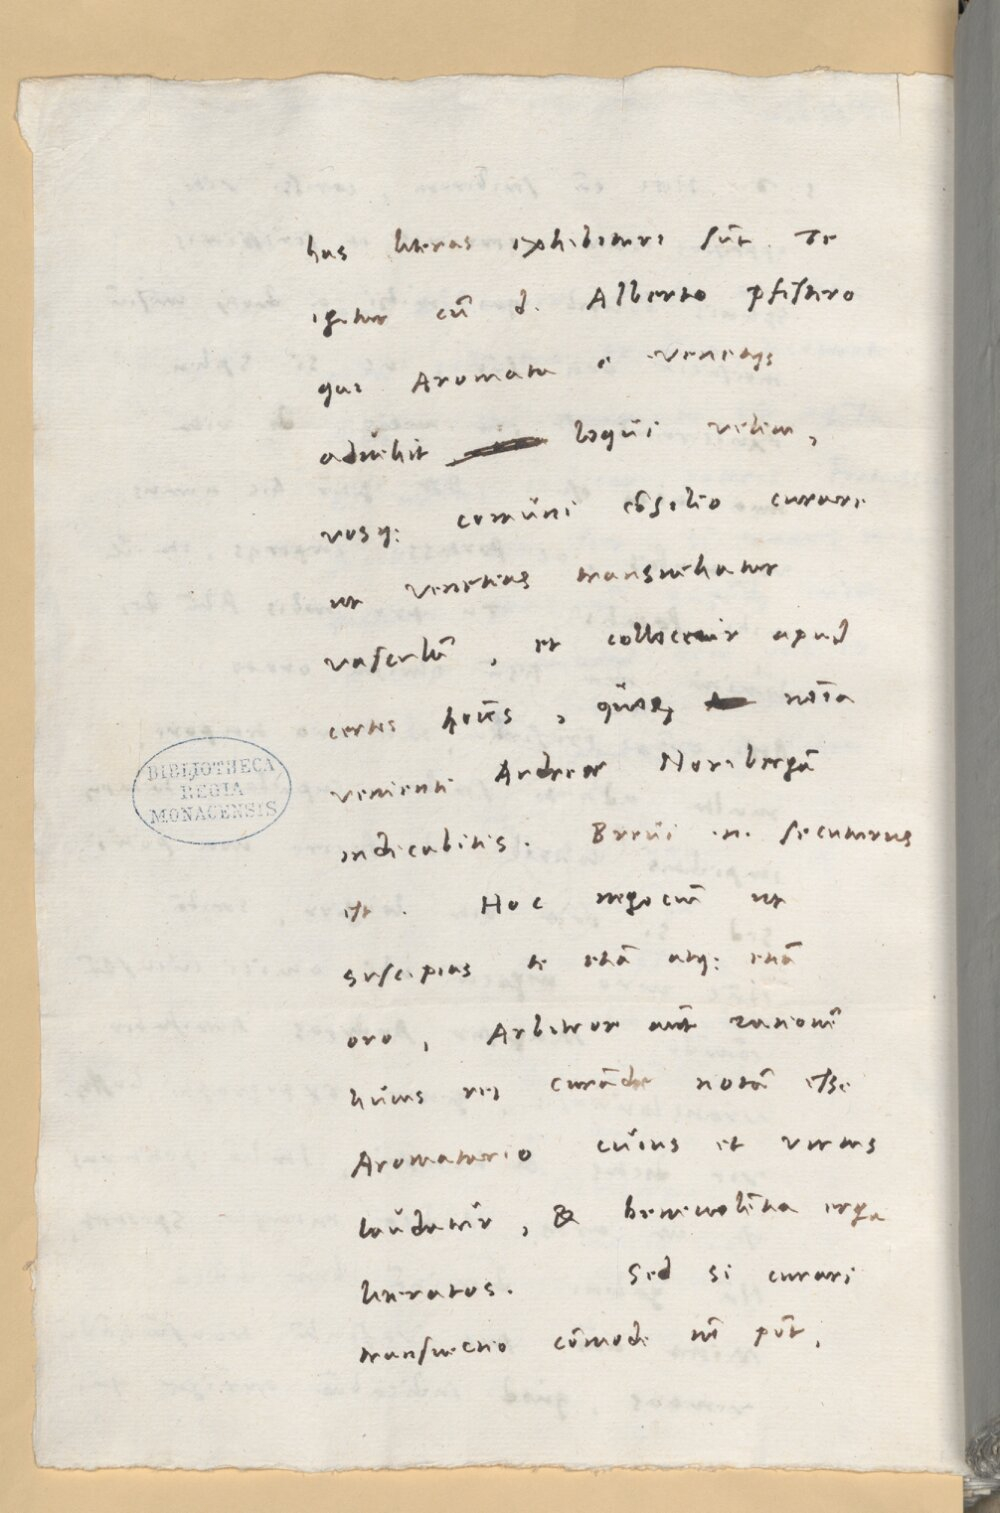 has literas exhibituri sūt. Te
igitur cū d. Alberto pfistero
qui Aromata e venetijs
aduehit loqui velim,
vosq: comūni cōsilio curare
ut venetias transuehatur
vasculū, et collocetur apud
certos hoīēs, quorū noīa
venienti Andreæ Noribergā
indicabitis. Breui .n. secuturus
est. Hoc negociū ut
suscipias te etiā atq: etiā
oro, Arbitror aūt rationē
huius rei curādæ notā esse
Aromatario cuius et virtus
laudatur, & beneuolētia erga
literatos. Sed si curari
transuectio cōmode nō pōt,
BIBLIOTHECA
REGIA
MONACENSIS